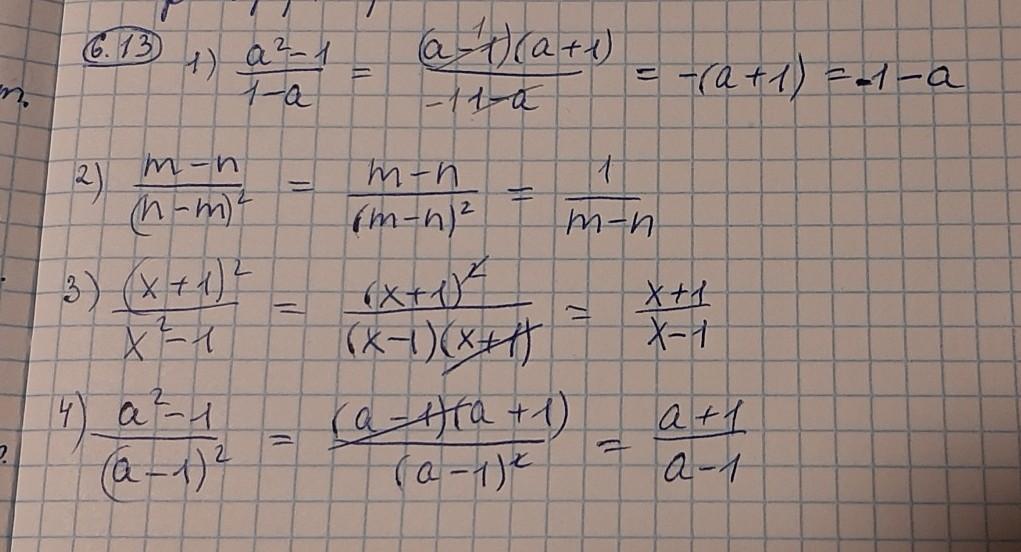 6.13 1) (a²-1)/(1-a) = ((a-1)(a+1))/(-1 1-a) = -(a+1) = -1-a
2) (m-n)/(n-m)² = (m-n)/(m-n)² = 1/(m-n)
3) (x+1)²/(x²-1) = (x+1)²/((x-1)(x+1)) = (x+1)/(x-1)
4) (a²-1)/(a-1)² = ((a-1)(a+1))/(a-1)² = (a+1)/(a-1)